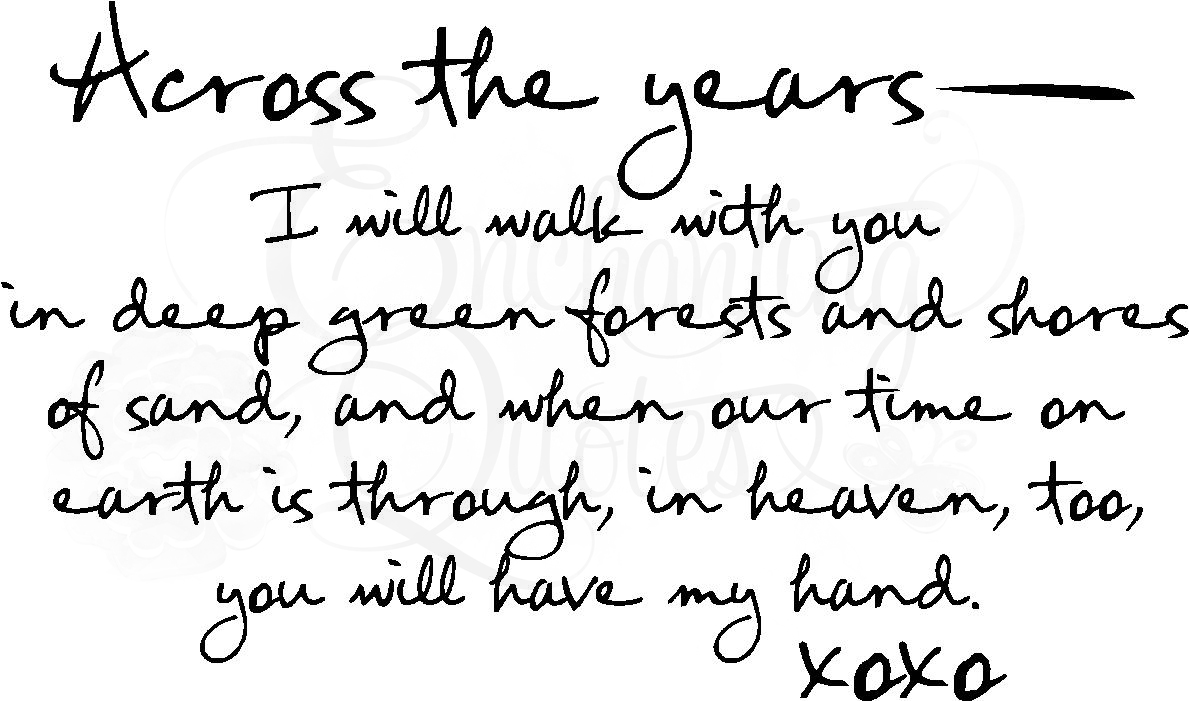 Across the years—
I will walk with you
in deep green forests and shores
of sand, and when our time on
earth is through, in heaven, too,
you will have my hand.
xoxo
Enchanting
Quotes